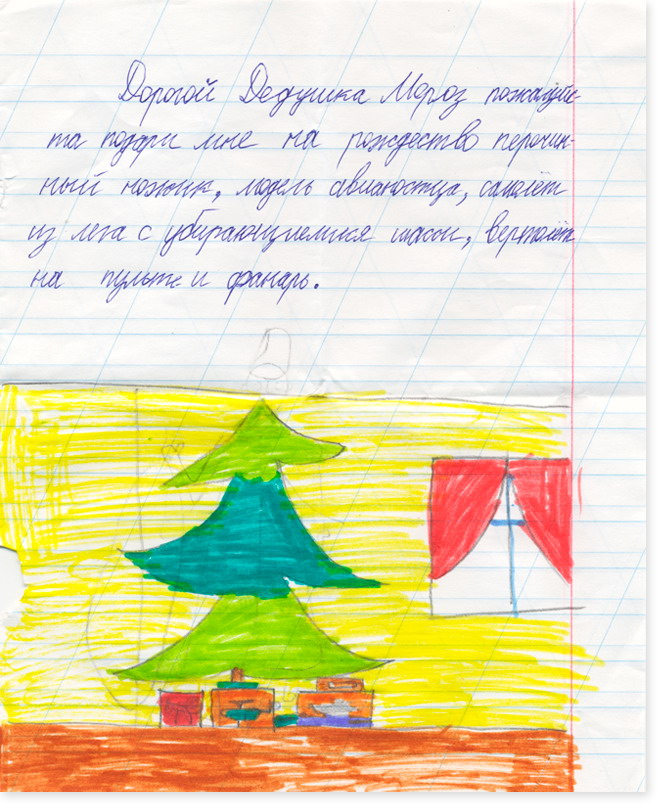 Дорогой Дедушка Мороз пожалуйс-
та подари мне на рождество перочин-
ный ножик, модель авианостца, самолёт
из лега с убирающиемися шасси, вертолёт
на пульте и фанарь.